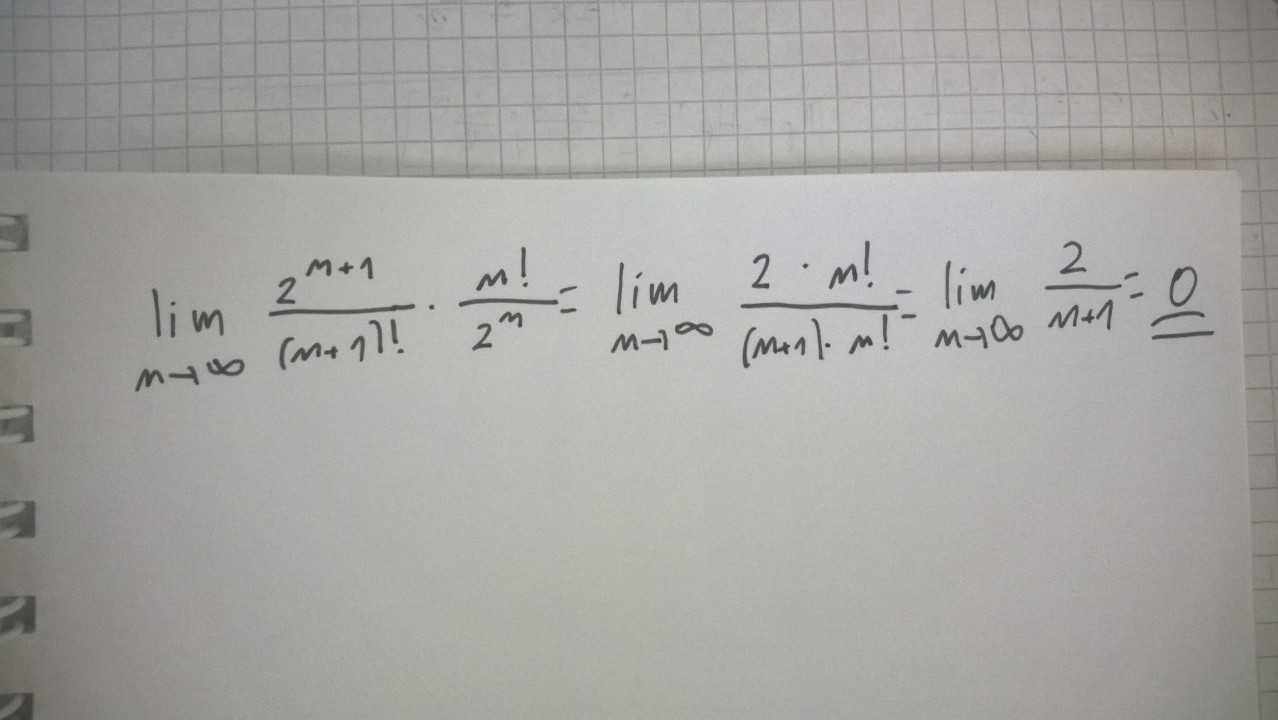 lim n→∞ 2^(n+1)/(n+1)! · n!/2^n = lim n→∞ 2 · n!/((n+1) · n!) = lim n→∞ 2/(n+1) = 0